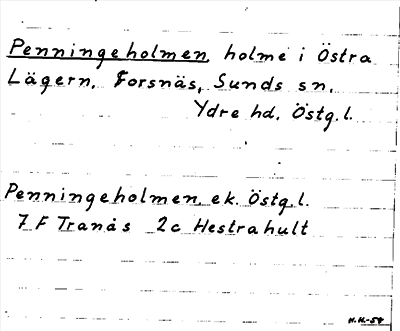 Penningeholmen, holme i Östra
Lägern, Forsnäs, Sunds sn,
Ydre hd, Östg.l.
Penningeholmen, ek. Östg.l.
7 F Tranås 2c Hestrahult
H.H.-54